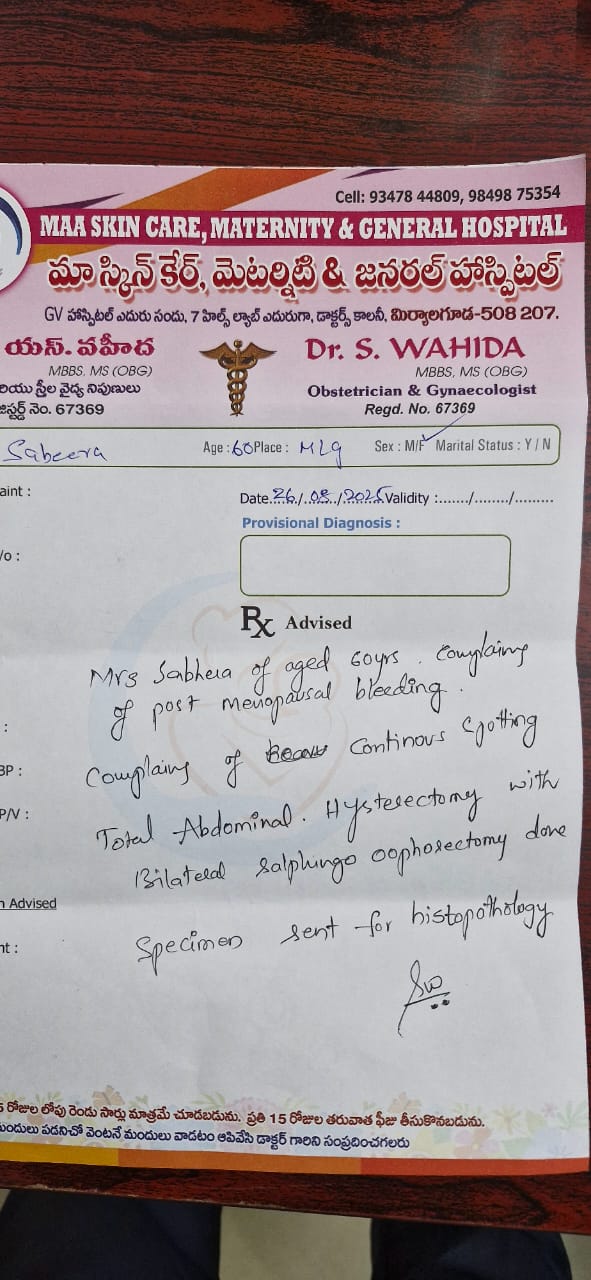 Cell: 93478 44809, 98498 75354
MAA SKIN CARE, MATERNITY & GENERAL HOSPITAL
మా స్కిన్ కేర్, మెటర్నిటి & జనరల్ హాస్పిటల్
GV హాస్పిటల్ ఎదురు సందు, 7 హిల్స్ ల్యాబ్ ఎదురుగా, డాక్టర్స్ కాలనీ, మిర్యాలగూడ-508 207.
యస్. వహీద
MBBS, MS (OBG)
రియు స్త్రీల వైద్య నిపుణులు
జిస్టర్డ్ నెం. 67369
Dr. S. WAHIDA
MBBS, MS (OBG)
Obstetrician & Gynaecologist
Regd. No. 67369
Sabeera Age : 60 Place : MLG Sex : M/F Marital Status : Y / N
aint :
Date 26/08/2025 Validity :......./......../.........
Provisional Diagnosis :
/o :
Rx Advised
Mrs Sabhera of aged 60yrs. Complains
of post menopausal bleeding.
Complains of Continous Spotting
Total Abdominal. Hysterectomy with
Bilateral Salphingo oophorectomy done
Specimen sent for histopothology
:
BP :
P/N :
n Advised
nt :
5 రోజుల లోపు రెండు సార్లు మాత్రమే చూడబడును. ప్రతి 15 రోజుల తరువాత ఫీజు తీసుకొనబడును.
మందులు పడనిచో వెంటనే మందులు వాడటం ఆపివేసి డాక్టర్ గారిని సంప్రదించగలరు